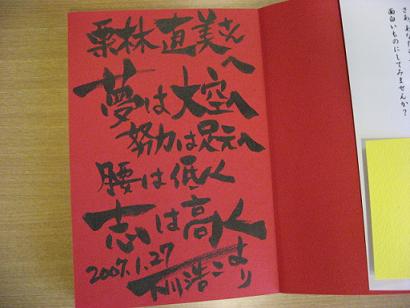 栗林直美さんへ
夢は大空へ
努力は足元へ
腰は低く
志は高く
2007.1.27
下川浩二より
さあ、あなた
面白いものにしてみませんか?